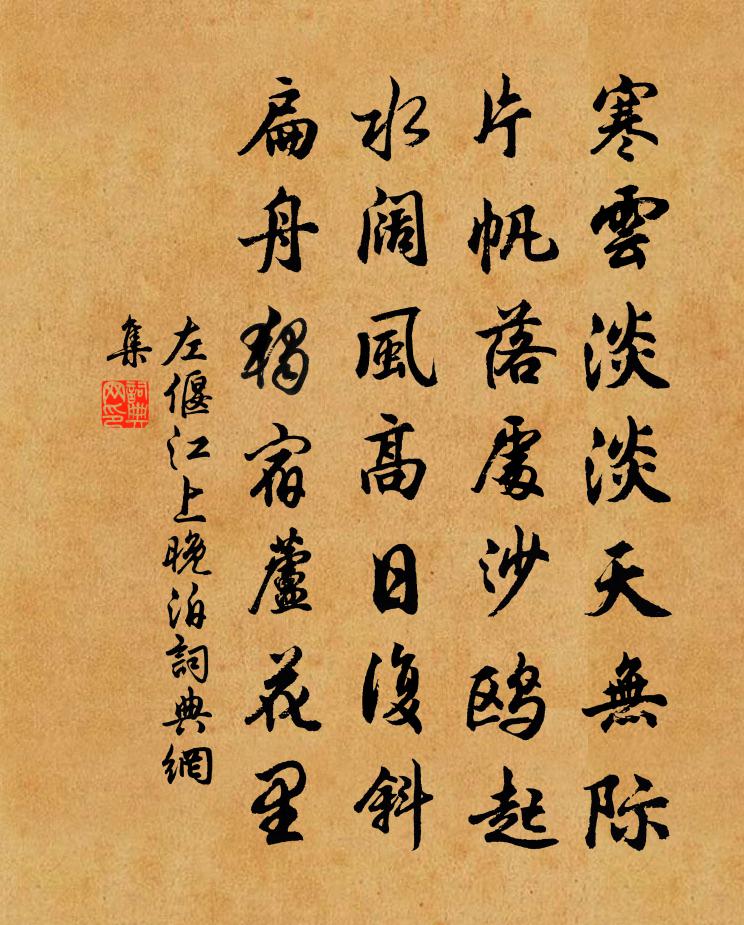 寒雲淡淡天無际
片帆落處沙鸥起
水阔風高日復斜
扁舟獨宿蘆花里
左偃江上晚泊詞典網
集
詞典网印